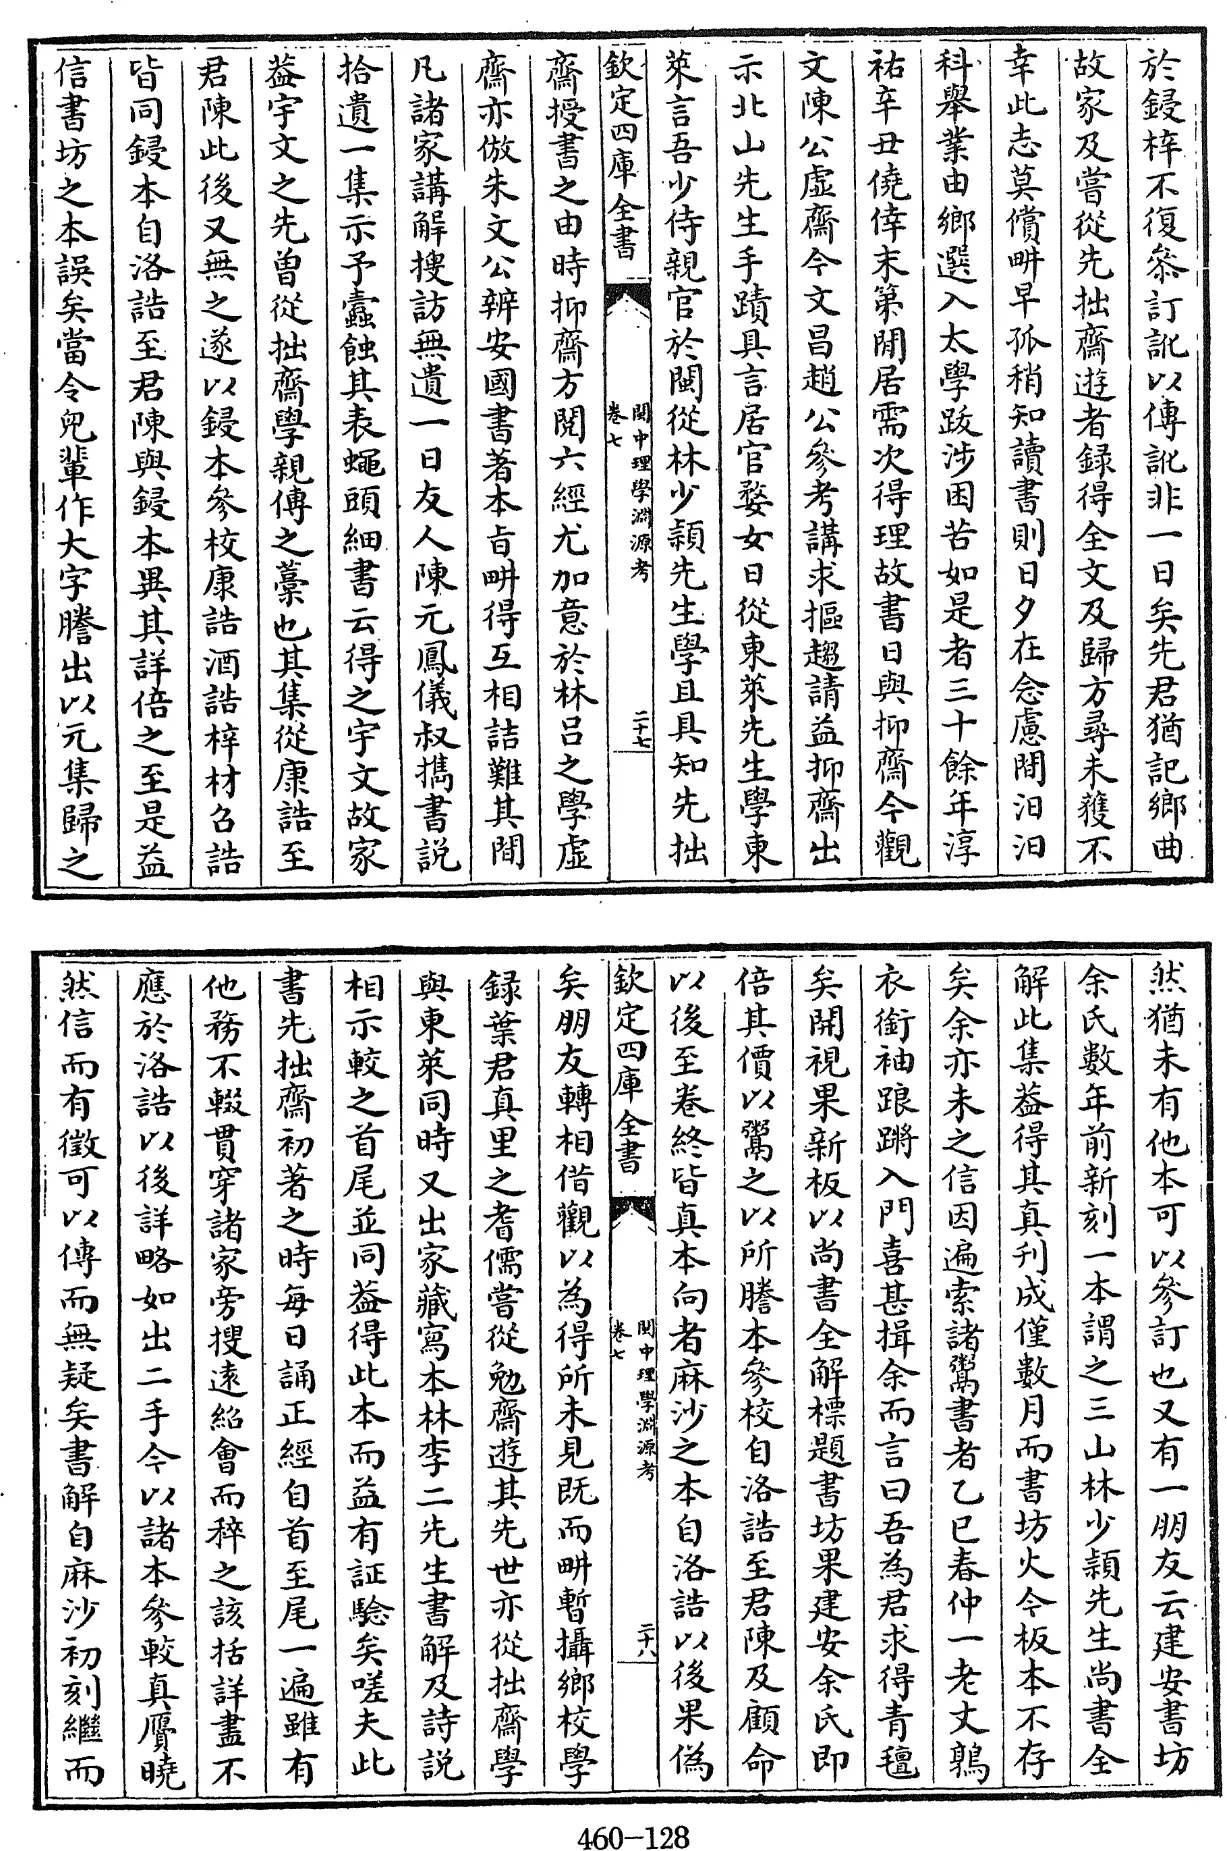 於鋟梓不復叅訂訛以傳訛非一日矣先君猶記鄉曲
故家及嘗從先拙齋遊者録得全文及歸方尋未獲不
幸此志莫償畊早孤稍知讀書則日夕在念慮間汨汨
科舉業由鄉選入太學跋涉困苦如是者三十餘年淳
祐辛丑僥倖末第閒居需次得理故書日與抑齋今觀
文陳公虛齋今文昌趙公參考講求摳趨請益抑齋出
示北山先生手蹟具言居官婺女日從東萊先生學東
萊言吾少侍親官於閩從林少穎先生學且具知先拙
欽定四庫全書
閩中理學淵源考
卷七
二十七
齋授書之由時抑齋方閲六經尤加意於林吕之學虛
齋亦倣朱文公辨安國書著本㫖畊得互相詰難其間
凡諸家講解搜訪無遺一日友人陳元鳳儀叔携書説
拾遺一集示予蠹蝕其表蠅頭細書云得之宇文故家
葢宇文之先曾從拙齋學親傳之藁也其集從康誥至
君陳此後又無之遂以鋟本參校康誥酒誥梓材召誥
皆同鋟本自洛誥至君陳與鋟本異其詳倍之至是益
信書坊之本誤矣當令兒輩作大字謄出以元集歸之
然猶未有他本可以參訂也又有一朋友云建安書坊
余氏數年前新刻一本謂之三山林少穎先生尚書全
解此集葢得其真刋成僅數月而書坊火今板本不存
矣余亦未之信因遍索諸鬻書者乙巳春仲一老丈鶉
衣銜袖踉蹡入門喜甚揖余而言曰吾為君求得青氊
矣開視果新板以尚書全解標題書坊果建安余氏即
倍其價以鬻之以所謄本參校自洛誥至君陳及顧命
以後至卷終皆真本向者麻沙之本自洛誥以後果偽
欽定四庫全書
閩中理學淵源考
卷七
二十八
矣朋友轉相借觀以為得所未見既而畊暫攝鄉校學
録葉君真里之耆儒嘗從勉齋遊其先世亦從拙齋學
與東萊同時又出家藏寫本林李二先生書解及詩説
相示較之首尾並同葢得此本而益有証驗矣嗟夫此
書先拙齋初著之時每日誦正經自首至尾一遍雖有
他務不輟貫穿諸家旁搜逺紹會而稡之該括詳盡不
應於洛誥以後詳略如出二手今以諸本參較真贗曉
然信而有徵可以傳而無疑矣書解自麻沙初刻繼而
460-128